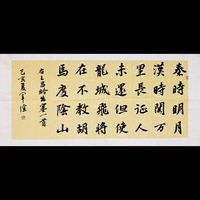 秦時明月
漢時關万
里長征人
未還但使
龍城飛將
在不教胡
馬度陰山
右王昌齡出塞一首
乙亥夏